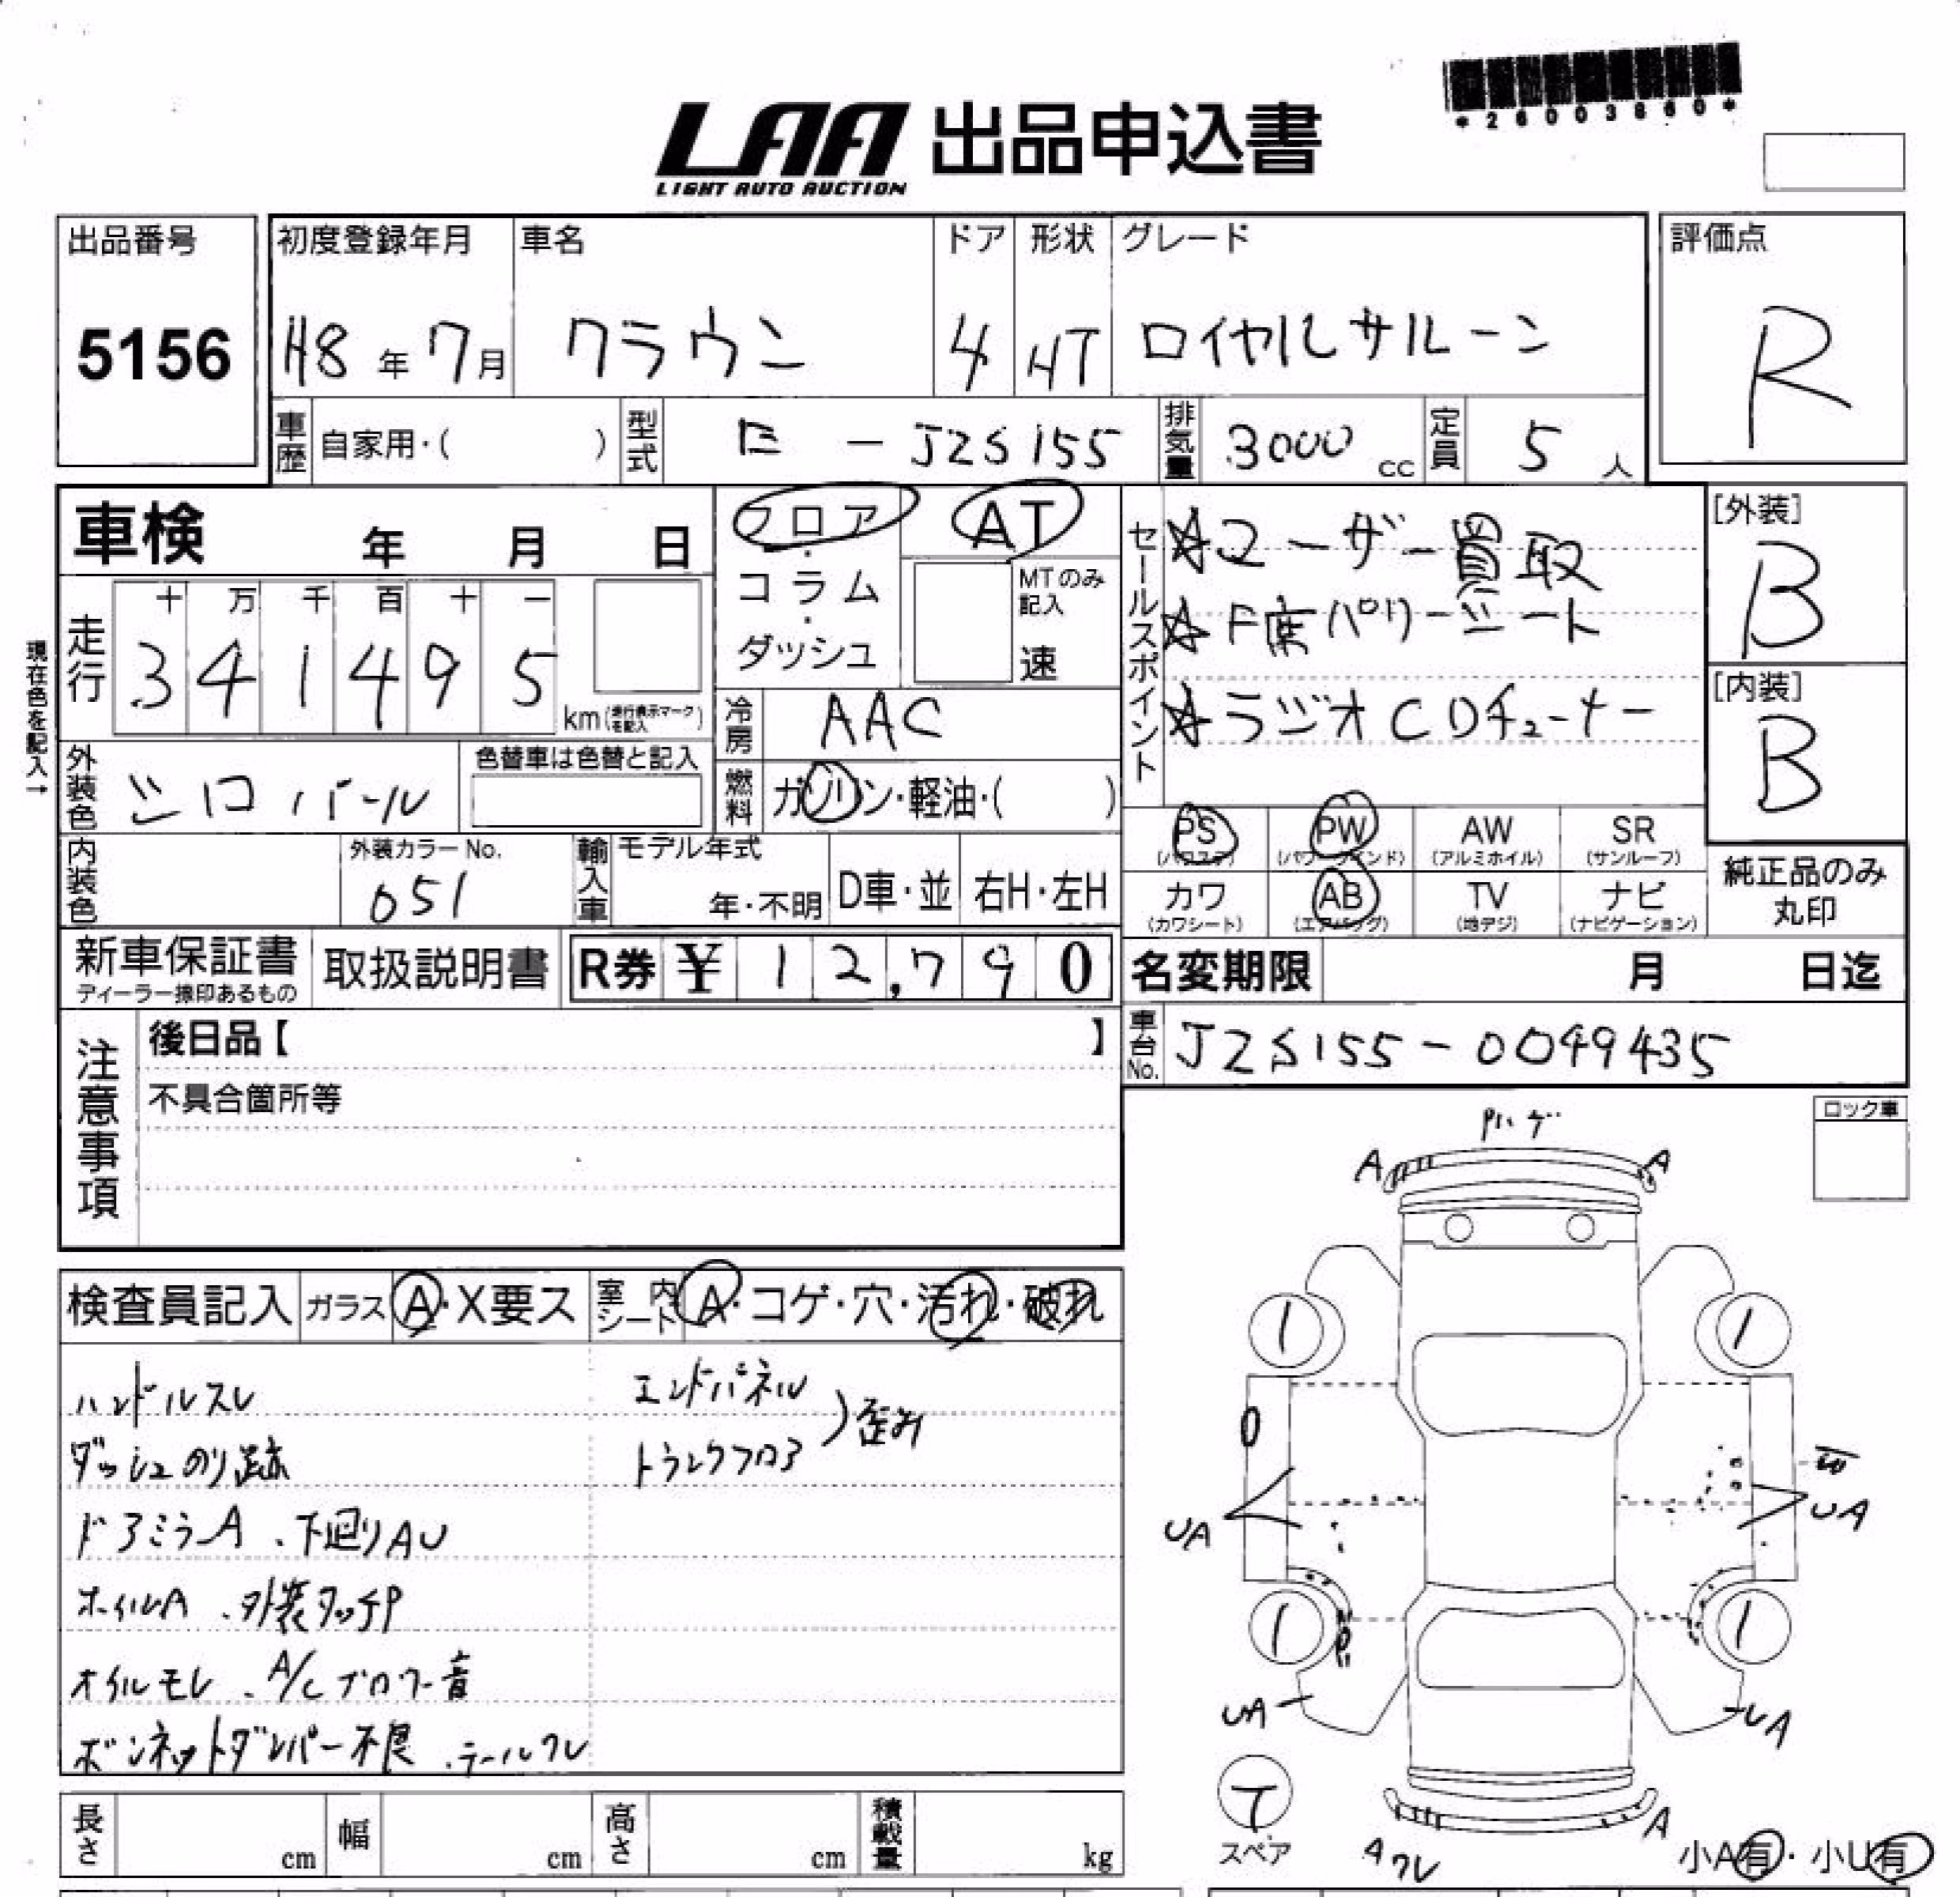 *26003860*
LAA 出品申込書
LIGHT AUTO AUCTION
出品番号 初度登録年月 車名 ドア 形状 グレード 評価点
5156 H8年 7月 クラウン 4 HT ロイヤルサルーン R
車歴 自家用・( ) 型式 E - JZS155 排気量 3000 cc 定員 5 人
車検 年 月 日 フロア・コラム・ダッシュ AT
MTのみ記入 速
セールスポイント
☆ユーザー買取
☆F席パワーシート
☆ラジオCDチューナー
[外装] B
[内装] B
現在色を記入→
走行 十 万 千 百 十 一
3 4 1 4 9 5 km(走行表示マークを記入)
冷房 AAC
外装色 シロパール 色替車は色替と記入
燃料 ガソリン・軽油・( )
PS AW SR
PW (パワーウインド) (アルミホイル) (サンルーフ)
内装色 外装カラーNo. 051 輸入車 モデル年式 年・不明 D車・並 右H・左H
カワ AB TV ナビ
(カワシート) (エアバッグ) (地デジ) (ナビゲーション)
純正品のみ丸印
新車保証書 取扱説明書 R券 ¥ 12,790
ディーラー捺印あるもの
名変期限 月 日迄
注意事項 後日品【 】
車台No. JZS155-0049435
不具合箇所等
ロック車
検査員記入 ガラス A・X要ス 室内シート A・コゲ・穴・汚れ・破れ
ハンドルスレ エンドパネル
ダッシュのり跡 トランクフロア )歪み
ドアミラーA、下廻りAU
ホイルA、外装タッチP
オイルモレ、A/Cブロワー音
ボンネットダンパー不良、テールワレ
A A
UA UA
UA UA
T
スペア
A
Aワレ
小A有・小U有
長さ cm 幅 cm 高さ cm 積載量 kg